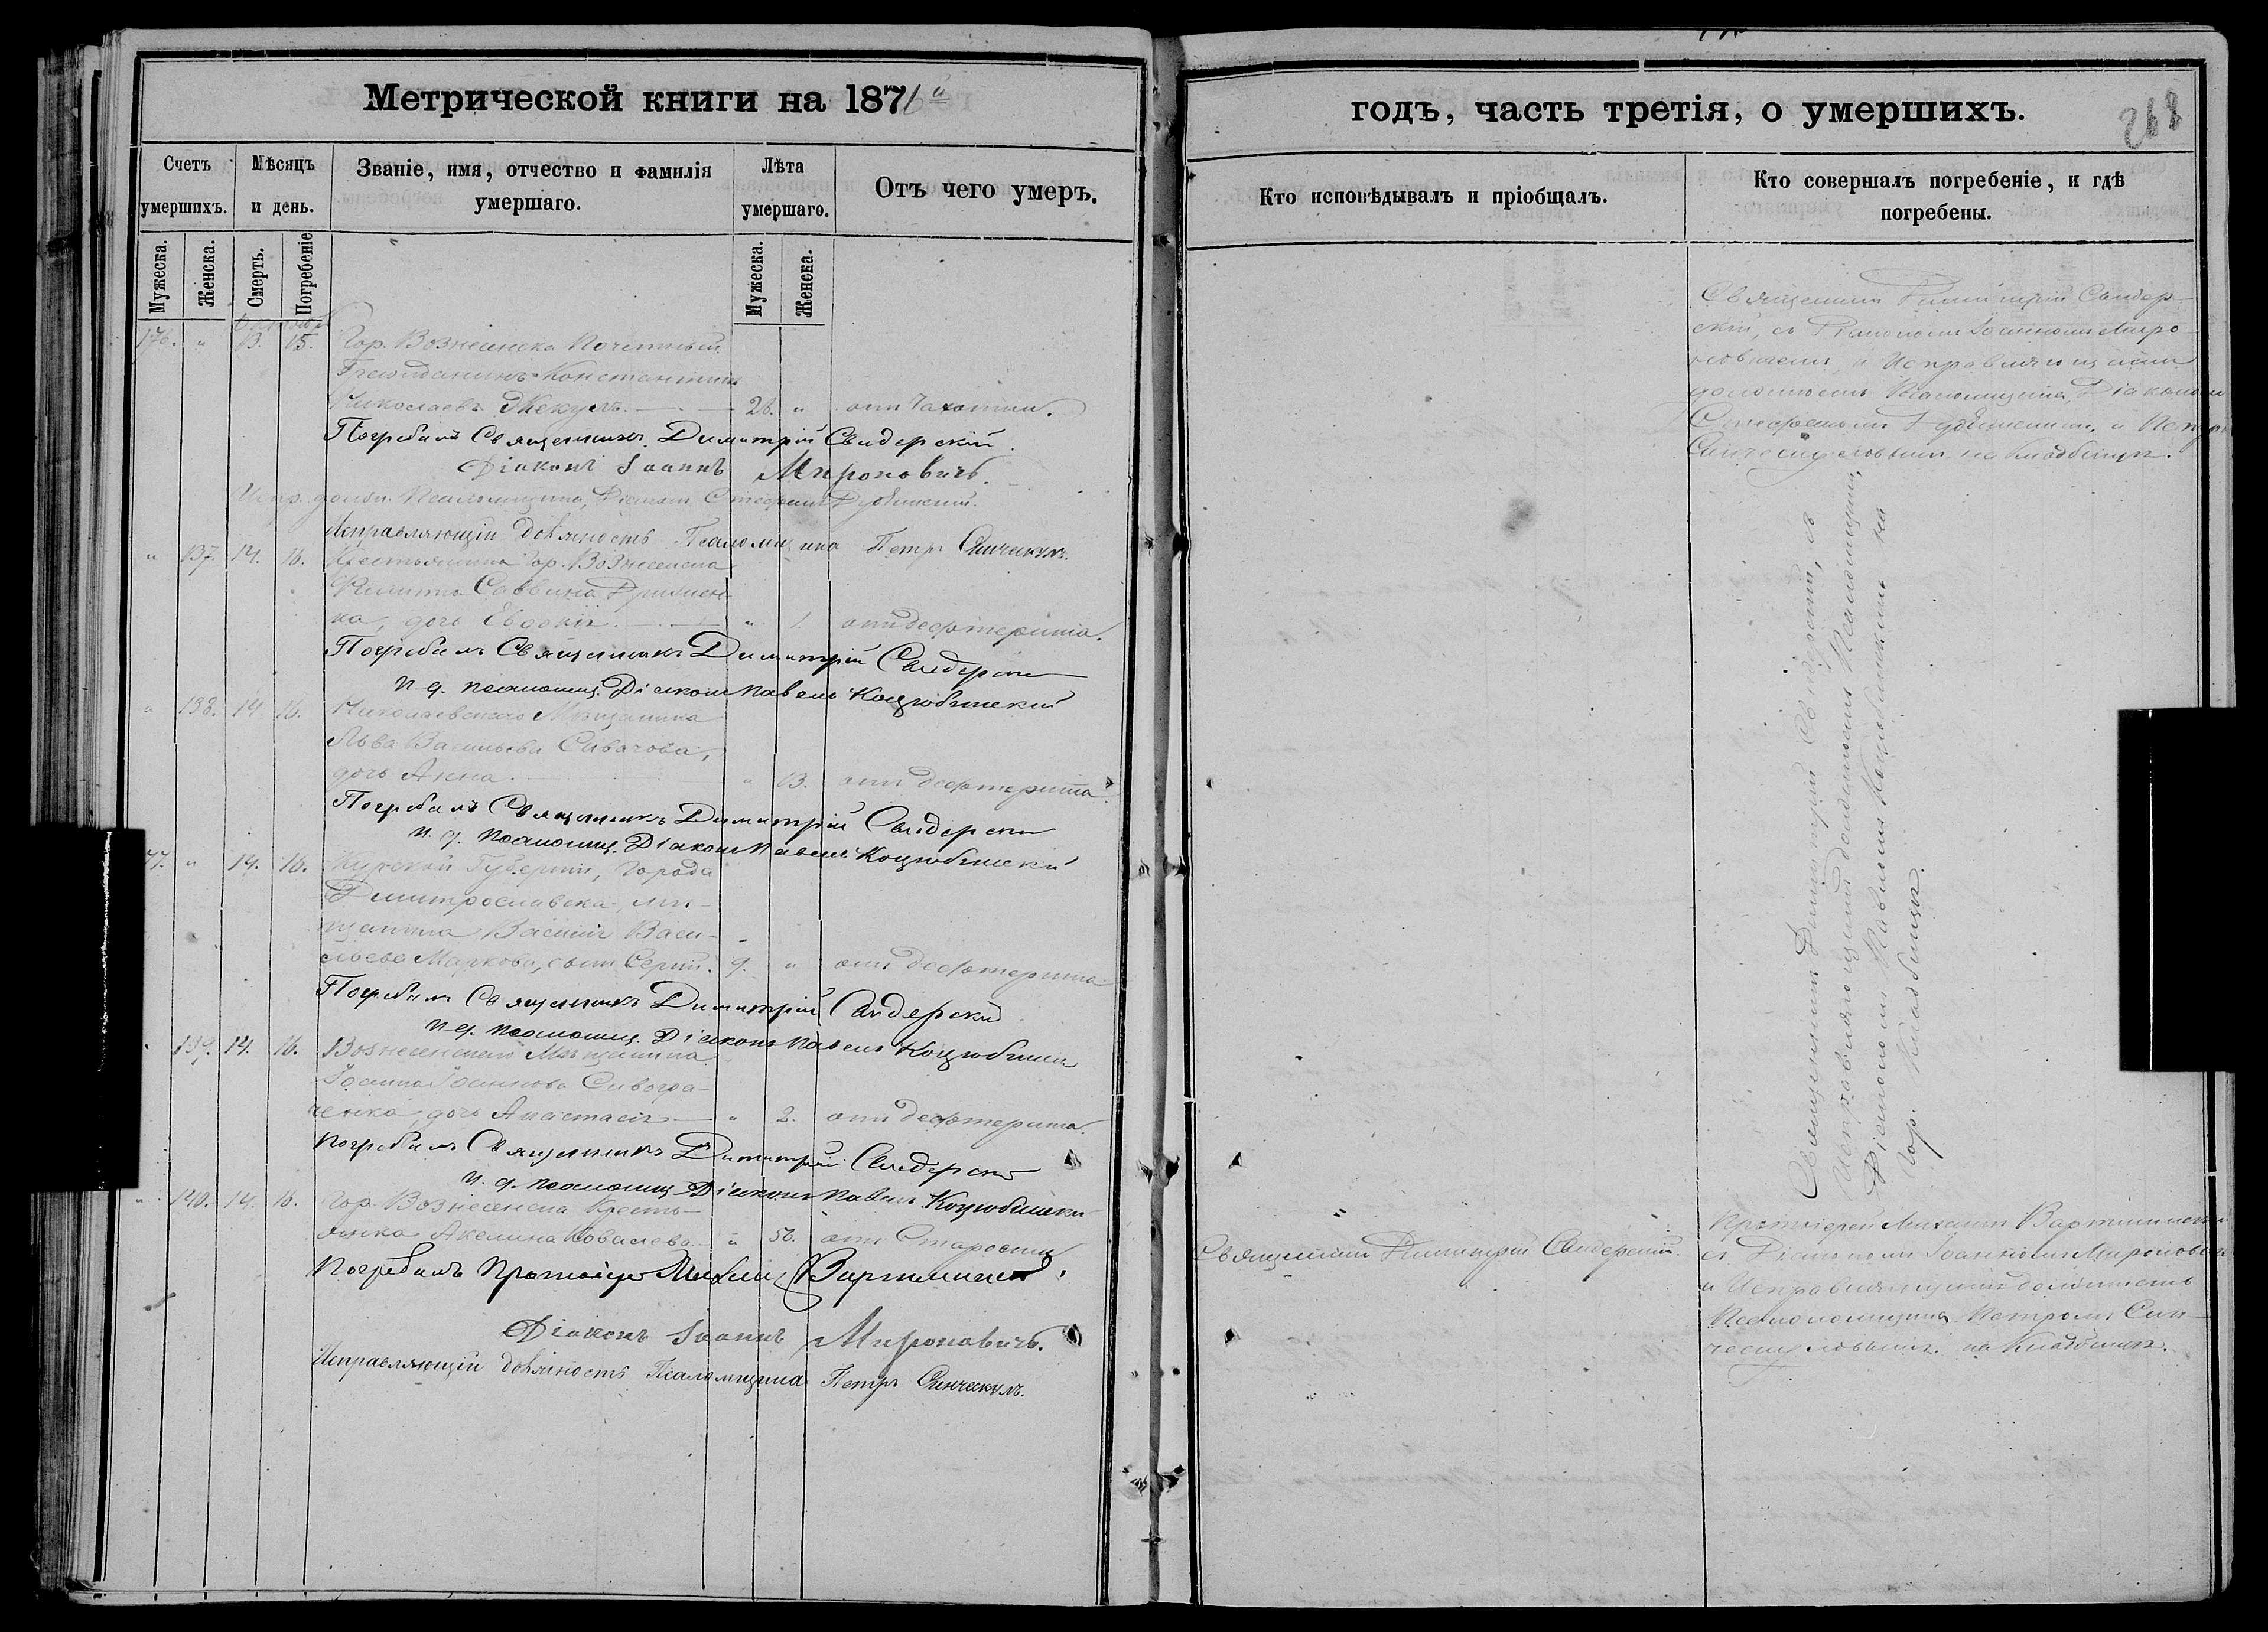 Метрической книги на 1876й
Счетъ умершихъ.
Мѣсяцъ и день.
Званіе, имя, отчество и фамилія умершаго.
Лѣта умершаго.
Отъ чего умеръ.
Мужеска.
Женска.
Смерть.
Погребеніе
Мужеска.
Женска.
176. " 13. 15. Гор. Вознесенска Почетный
Гражданинъ Константинъ
Николаевъ 26. " отъ Чахотки.
Погребалъ Священникъ Димитрій Свидерскій.
Діаконъ Іоаннъ Мироновичъ.
Испр. должн. Псаломщика, Діаконъ Стефанъ
Исправляющій должность Псаломщика Петръ
" 137. 14. 16. Крестьянина гор. Вознесенска
Саввина
ка, дочь Евдокія " 1. отъ дефтерита.
Погребалъ Священникъ Димитрій Свидерскій
и. д. псаломщ. Діаконъ Павелъ Коцюбинскій
" 138. 14 16. Николаевскаго Мѣщанина
Льва Васильева Сивачова,
дочь Анна " 13. отъ дефтерита.
Погребалъ Священникъ Димитрій Свидерскій
и. д. псаломщ. Діаконъ Павелъ Коцюбинскій
77. " 14. 16. Курской Губерніи, Города
Дмитрославска, мѣ-
щанина Василія Васи-
льева Маркова, сынъ Сергій. 9. " отъ дефтерита
Погребалъ Священникъ Димитрій Свидерскій
и. д. псаломщ. Діаконъ Павелъ Коцюбинскій
139. 14. 16. Вознесенскаго Мѣщанина
Іоанна Іоаннова Сивогра-
ченка, дочь Анастасія " 2. отъ дефтерита.
Погребалъ Священникъ Димитрій Свидерскій
и. д. псаломщ. Діаконъ Павелъ Коцюбинскій
" 140. 14. 16. Гор. Вознесенска Кресть-
янка Акелина Ковалева " 56. отъ Старости
Погребалъ Протоіерей Михаилъ
Діаконъ Іоаннъ Мироновичъ.
Исправляющій должность Псаломщика Петръ
годъ, часть третія, о умершихъ.
268
Кто исповѣдывалъ и пріобщалъ.
Кто совершалъ погребеніе, и гдѣ погребены.
Священникъ Димитрій Свидер-
скій, съ Діакономъ Іоанномъ Миро-
новичемъ, и Исправляющими
должность Псаломщика, Діакономъ
Стефаномъ и Петромъ
на кладбищѣ.
Священникъ Димитрій Свидерскій, съ
Исправляющимъ должность Псаломщика,
Діакономъ Павломъ Коцюбинскимъ на
гор. Кладбищѣ.
Священникъ Димитрій Свидерскій.
Протоіерей Михаилъ
съ Діакономъ Іоанномъ Мироновичемъ
и Исправляющимъ должность
Псаломщика Петромъ Син-
на Кладбищѣ.